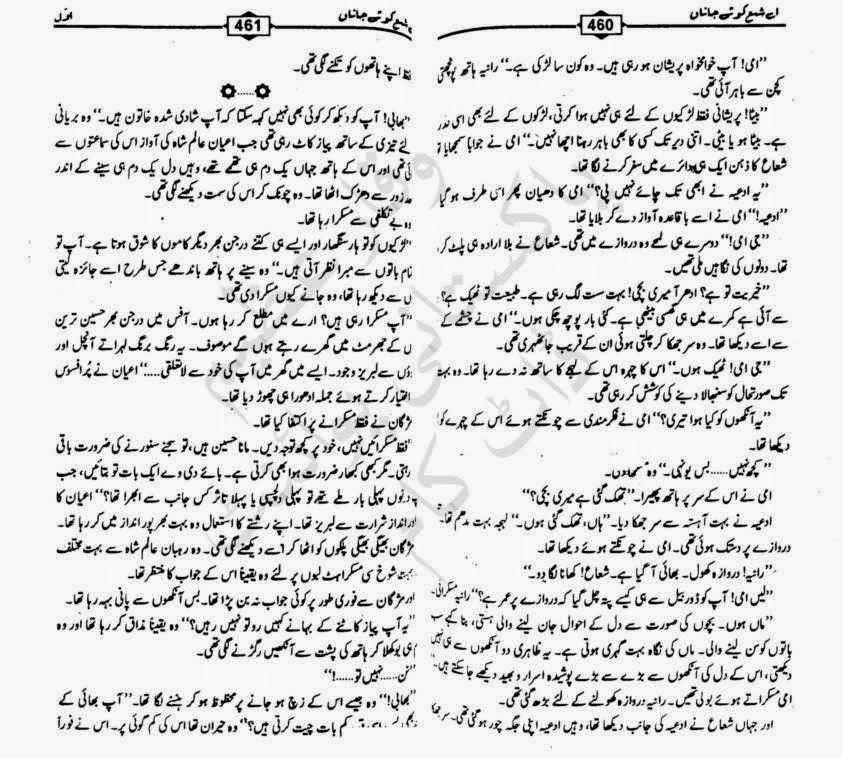 اے شمع کوئے جاناں
460
’’امی! آپ خوامخواہ پریشان ہو رہی ہیں۔ وہ کون سا لڑکی ہے۔‘‘ رانیہ ہاتھ پونچھتی
کچن سے باہر آئی تھی۔
’’بیٹا! پریشانی فقط لڑکیوں کے لئے ہی نہیں ہوا کرتی، لڑکوں کے لئے بھی اسی قدر
ہے۔ بیٹا ہو یا بیٹی۔ اتنی دیر تک کسی کا بھی باہر رہنا اچھا نہیں۔‘‘ امی نے جواباً سمجھایا تو
شعاع کا ذہن ایک ہی دائرے میں سفر کرنے لگا تھا۔
’’یہ ادعیہ نے ابھی تک چائے نہیں پی؟‘‘ امی کا دھیان پھر اسی طرف ہو گیا
’’ادعیہ!‘‘ امی نے اسے باقاعدہ آواز دے کر بلایا تھا۔
’’جی امی!‘‘ دوسرے ہی لمحے وہ دروازے میں تھی۔ شعاع نے بلا ارادہ ہی پلٹ کر
تھا۔ دونوں کی نگاہیں ملی تھیں۔
’’خیریت تو ہے؟ ادھر آ میری بچی! بہت ست لگ رہی ہے۔ طبیعت تو ٹھیک ہے؟
سے آئی ہے کمرے میں ہی گھسی بیٹھی ہے۔ کئی بار پوچھ چکی ہوں۔‘‘ امی نے چشمے کے
سے اسے دیکھا تھا۔ وہ سر جھکا کر چلتی ہوئی ان کے قریب جا ٹھہری تھی۔
’’جی امی! ٹھیک ہوں۔‘‘ اس کا چہرہ اس کے لہجے کا ساتھ نہ دے رہا تھا۔ وہ بہت
تک صورتحال کو سنبھالا دینے کی کوشش کر رہی تھی۔
’’یہ آنکھوں کو کیا ہوا تیری؟‘‘ امی نے فکرمندی سے چونکتے ہوئے اس کے چہرے کو
دیکھا تھا۔
’’کچھ نہیں......بس یونہی۔‘‘ وہ
امی نے اس کے سر پر ہاتھ پھیرا۔ ’’تھک گئی ہے میری بچی؟‘‘
ادعیہ نے بہت آہستہ سے سر جھکا دیا۔ ’’ہاں، تھک گئی ہوں۔‘‘ لہجہ بہت مدھم تھا۔
دروازے پر دستک ہوئی تھی۔ امی نے چونکتے ہوئے دیکھا تھا۔
’’رانیہ! دروازہ کھول۔ بھائی آ گیا ہے۔ شعاع! کھانا لگا دو۔‘‘
’’لیں امی! آپ کو ڈور بیل سے ہی کیسے پتہ چل گیا کہ دروازے پر عمر ہے؟‘‘ رانیہ مسکرائی۔
’’ماں ہوں۔ بچوں کی صورت سے دل کے احوال جان لینے والی ہستی، بنا کہے سب
باتوں کو سن لینے والی۔ ماں کی نگاہ بہت گہری ہوتی ہے۔ یہ ظاہری دو آنکھوں سے ہی نہیں
دیکھتی، اس کے دل کی آنکھوں سے بڑے سے بڑے پوشیدہ اسرار و بھید دیکھے جا سکتے ہیں۔‘‘
امی مسکراتے ہوئے بولی تھیں۔ رانیہ دروازہ کھولنے کے لئے بڑھ گئی تھی۔
اور جہاں شعاع نے ادعیہ کی جانب دیکھا تھا، وہیں ادعیہ اپنی جگہ چور ہو گئی تھی۔ سر جھکا
شمع کوئے جاناں
461
اوّل
فقط اپنے ہاتھوں کو تکنے لگی تھی۔
’’بھابی! آپ کو دیکھ کر کوئی بھی نہیں کہہ سکتا کہ آپ شادی شدہ خاتون ہیں۔‘‘ وہ بریانی
لئے تیزی کے ساتھ پیاز کاٹ رہی تھی جب اعیان عالم شاہ کی آواز اس کی سماعتوں سے
ئی تھی اور اس کے ہاتھ جہاں یک دم ہی تھمے تھے، وہیں دل یک دم ہی سینے کے اندر
زور سے دھڑک اٹھا تھا۔ وہ چونک کر اس کی سمت دیکھنے لگی تھی۔
وہ بے تکلفی سے مسکرا رہا تھا۔
’’لڑکیوں کو تو ہار سنگھار اور ایسے ہی کتنے درجن بھر دیگر کاموں کا شوق ہوتا ہے۔ آپ تو
تمام باتوں سے مبرا نظر آتی ہیں۔‘‘ وہ سینے پر ہاتھ باندھے جس طرح اسے جائزہ لیتی
ں سے دیکھ رہا تھا، وہ جانے کیوں مسکرا دی تھی۔
’’آپ مسکرا رہی ہیں؟ ارے میں مطلع کر رہا ہوں۔ آفس میں درجن بھر حسین ترین
ں کے جھرمٹ میں گھرے رہتے ہوں گے موصوف۔ یہ رنگ برنگ لہراتے آنچل اور
ؤں سے لبریز وجود۔ ایسے میں گھر میں آپ کی خود سے لاتعلقی....‘‘ اعیان نے پُرافسوس
اختیار کرتے ہوئے جملہ ادھورا ہی چھوڑ دیا تھا۔
مژگان نے فقط مسکرانے پر اکتفا کیا تھا۔
’’فقط مسکرائیں نہیں، خود پر کچھ توجہ دیں۔ مانا حسین ہیں، تو سجنے سنورنے کی ضرورت باقی
رہتی۔ مگر کبھی کبھار ضرورت ہوا بھی کرتی ہے۔ بائے دی وے ایک بات تو بتائیں، جب
دونوں پہلی بار ملے تھے تو پہلی دلچسپی یا پہلا تاثر کس جانب سے ابھرا تھا؟‘‘ اعیان کا
انداز شرارت سے لبریز تھا۔ اپنے رشتے کا استعمال وہ بہت بھرپور انداز میں کر رہا تھا۔
مژگان بھیگی بھیگی پلکوں کو اٹھا کر اسے دیکھنے لگی تھی۔ وہ رہبان عالم شاہ سے بہت مختلف
بہت شوخ سی مسکراہٹ لبوں پر لئے وہ یقیناً اس کے جواب کا منتظر تھا۔
اور مژگان سے فوری طور پر کوئی جواب نہ بن پڑا تھا۔ بس آنکھوں سے پانی بہہ رہا تھا۔
’’یہ آپ پیاز کاٹنے کے بہانے کہیں رو تو نہیں رہیں؟‘‘ وہ یقیناً مذاق کر رہا تھا اور وہ
ہی بوکھلا کر ہاتھ کی پشت سے آنکھیں رگڑنے لگی تھی۔
’’نن.....نہیں تو......!‘‘
’’بھابی!‘‘ وہ جیسے اس کے زچ ہو جانے پر محظوظ ہو کر ہنسنے لگا تھا۔ ’’آپ بھائی کے
کم بات چیت کرتی ہیں؟‘‘ وہ حیران تھا اس کی کم گوئی پر۔ اس نے فوراً